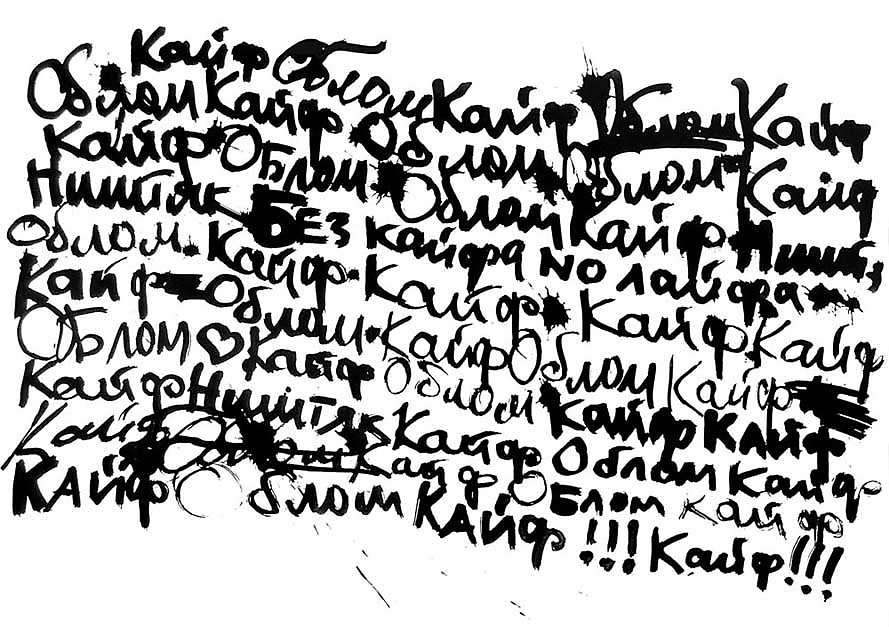 Кайф Облом Кайф Облом Кайф
Облом Кайф Облом Облом Кайф
Кайф Облом Облом Кайф Ништ
Ништяк Без кайфа no лайфа
Облом. Кайф. Кайф Кайф Кайф
Кайф Облом. Кайф Облом Кайф
Облом ♡ Кайф Облом Кайф КАЙФ
Кайф Ништяк Кайф Облом Кайф
Кайф Облом Кайф Облом кайф
КАйф Облом КАйф!!! Кайф!!!